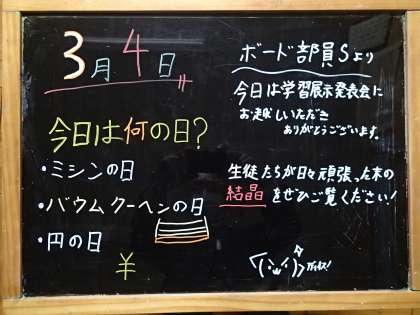 3月4日
今日は何の日?
・ミシンの日
・バウムクーヘンの日
・円の日
¥
ボード部員Sより
今日は学習展示発表会に
お越しいただき
ありがとうございます。
生徒たちが日々頑張った末の
結晶をぜひご覧ください!